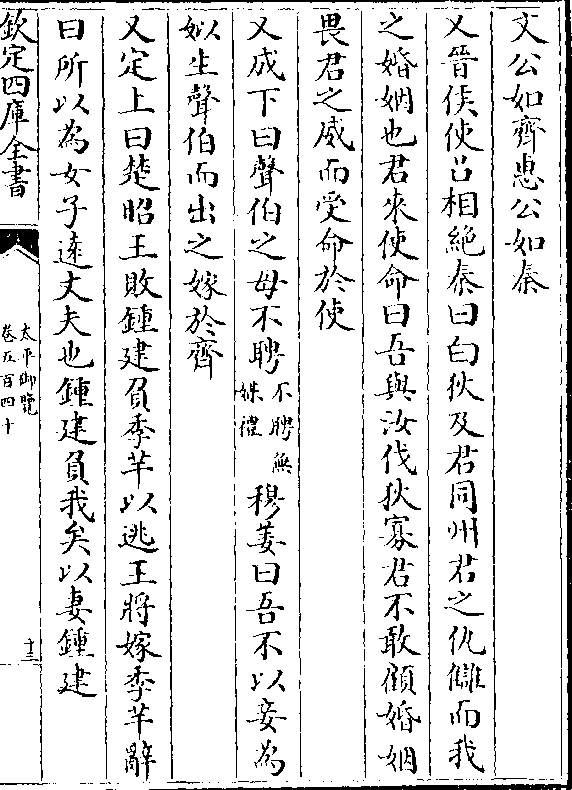 文公如齊惠公如秦
又晉侯使吕相絶秦曰白狄及君同州君之仇讎而我
之婚姻也君來使命曰吾與汝伐狄寡君不敢顧婚姻
畏君之威而受命於使
又成下曰聲伯之母不聘不聘無媒禮穆姜曰吾不以妾為
姒生聲伯而出之嫁於齊
又定上曰楚昭王敗鍾建負季芊以逃王將嫁季芊辭
曰所以為女子遠丈夫也鍾建負我矣以妻鍾建
欽定四庫全書
太平御覽
卷五百四十
十三